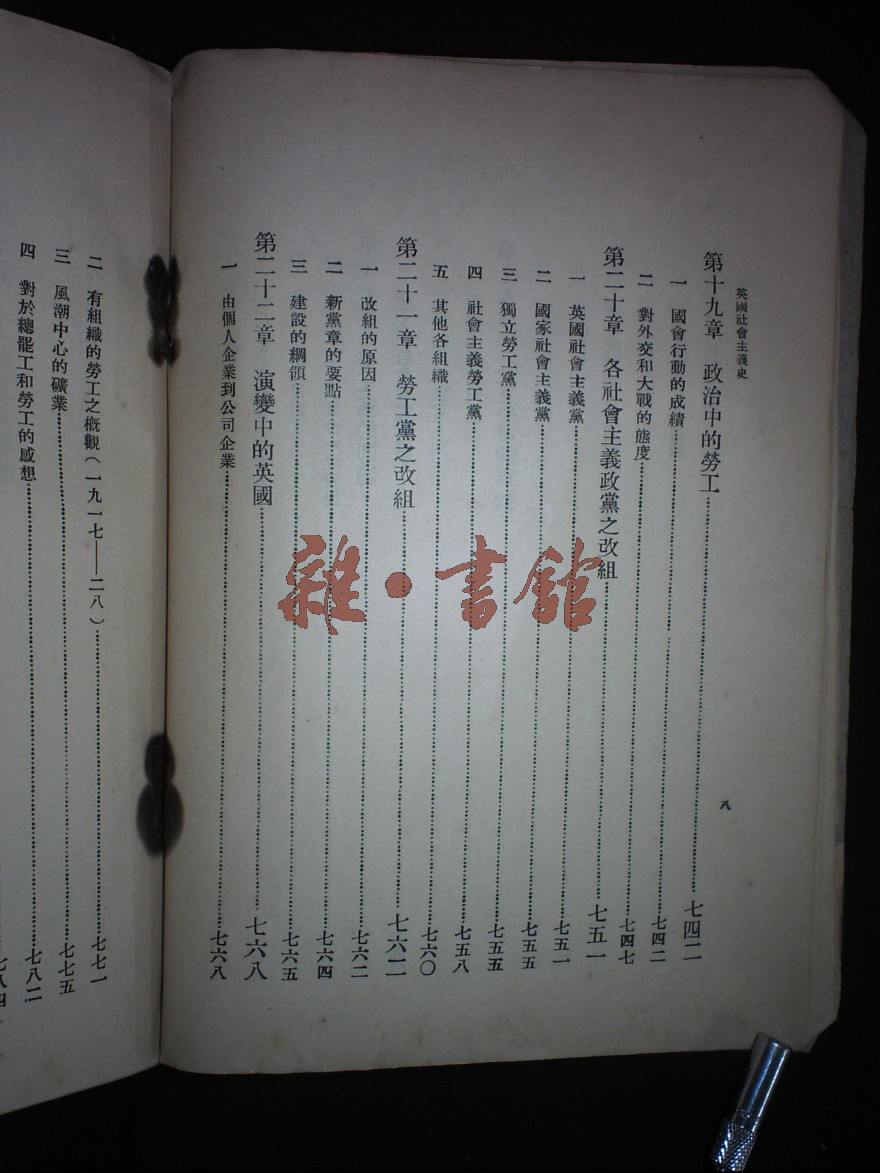 英國社會主義史
八
第十九章 政治中的勞工……七四二
一 國會行動的成績……七四二
二 對外交和大戰的態度……七四七
第二十章 各社會主義政黨之改組……七五一
一 英國社會主義黨……七五一
二 國家社會主義黨……七五五
三 獨立勞工黨……七五五
四 社會主義勞工黨……七五八
五 其他各組織……七六〇
第二十一章 勞工黨之改組……七六二
一 改組的原因……七六二
二 新黨章的要點……七六四
三 建設的綱領……七六五
第二十二章 演變中的英國……七六八
一 由個人企業到公司企業……七六八
二 有組織的勞工之概觀(一九一七——二八)……七七一
三 風潮中心的礦業……七七五
四 對於總罷工和勞工的感想……七八二
七八四
雜·書館